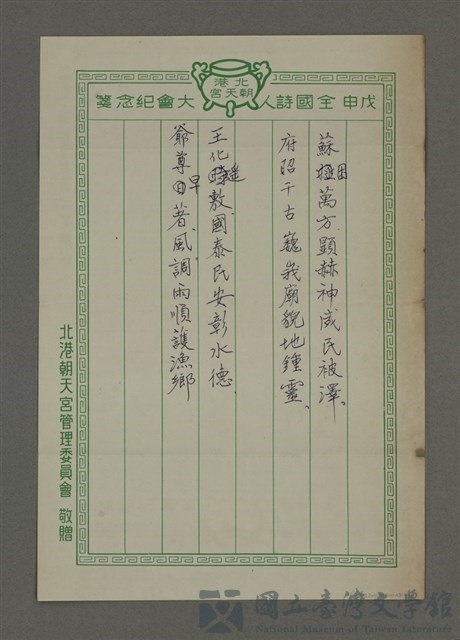 戊申全國詩人大會紀念箋
北港
朝天宮
蘇極困萬方顯赫神威民被澤、
府昭千古巍峩廟貌地鍾靈、
王化遙敷國泰民安彰水德
爺尊早著風調雨順護漁鄉
北港朝天宮管理委員會 敬贈
國立臺灣文學館
National Museum of Taiwan Literature